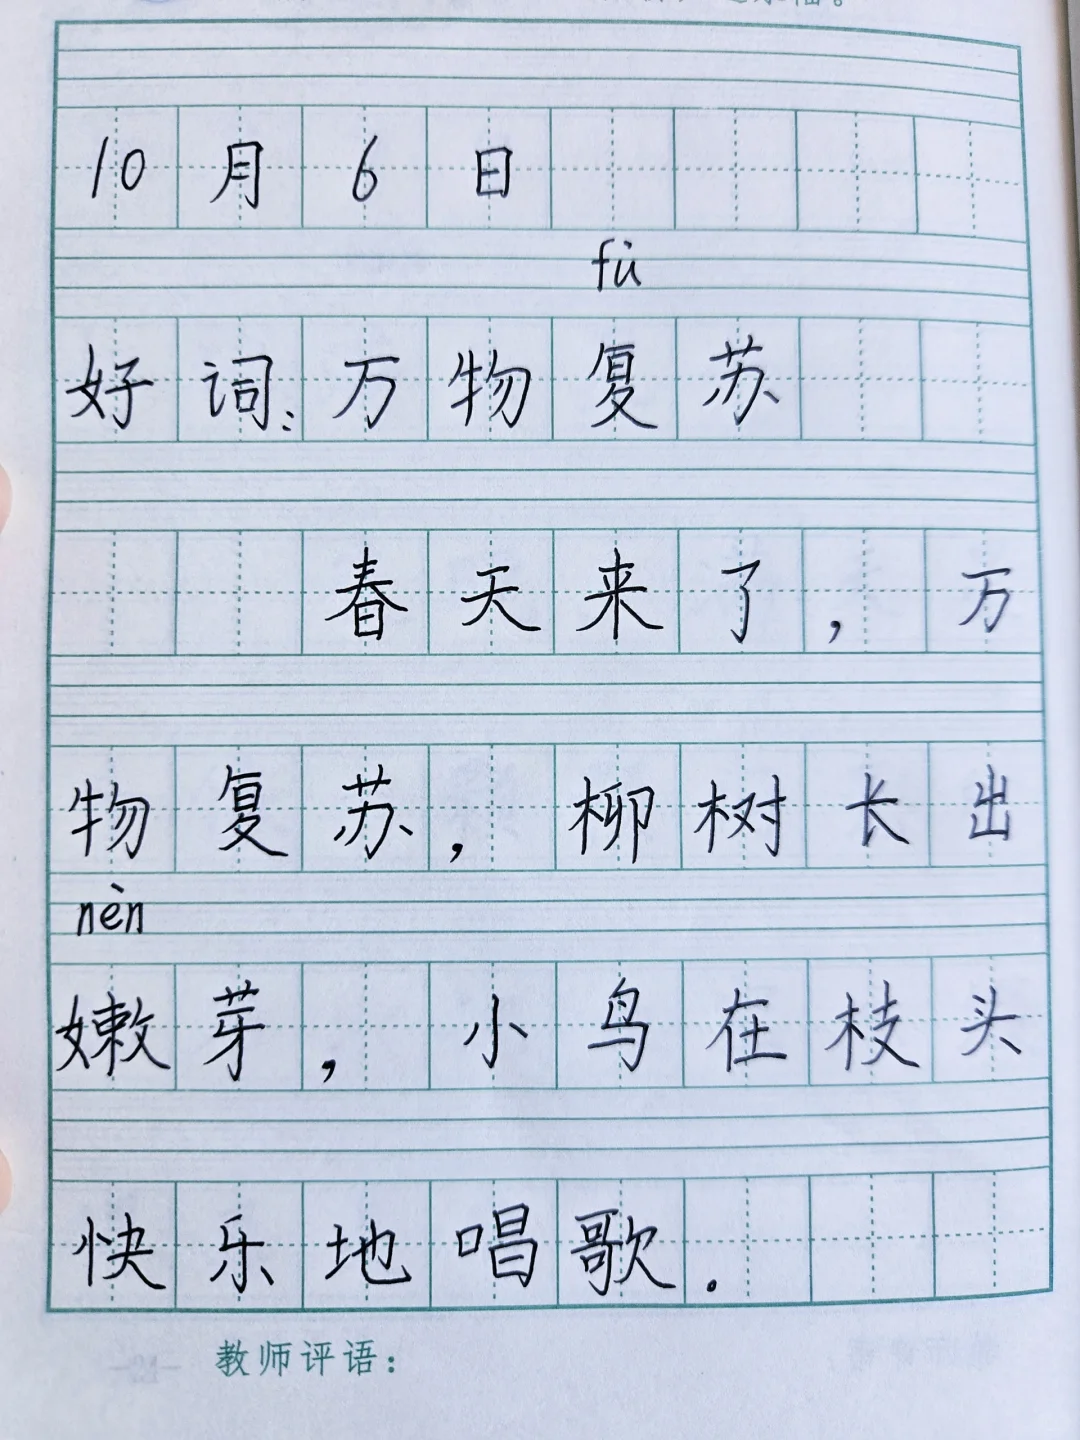 10月6日
fù
好词:万物复苏
春天来了,万
物复苏,柳树长出
nèn
嫩芽,小鸟在枝头
快乐地唱歌.
教师评语: